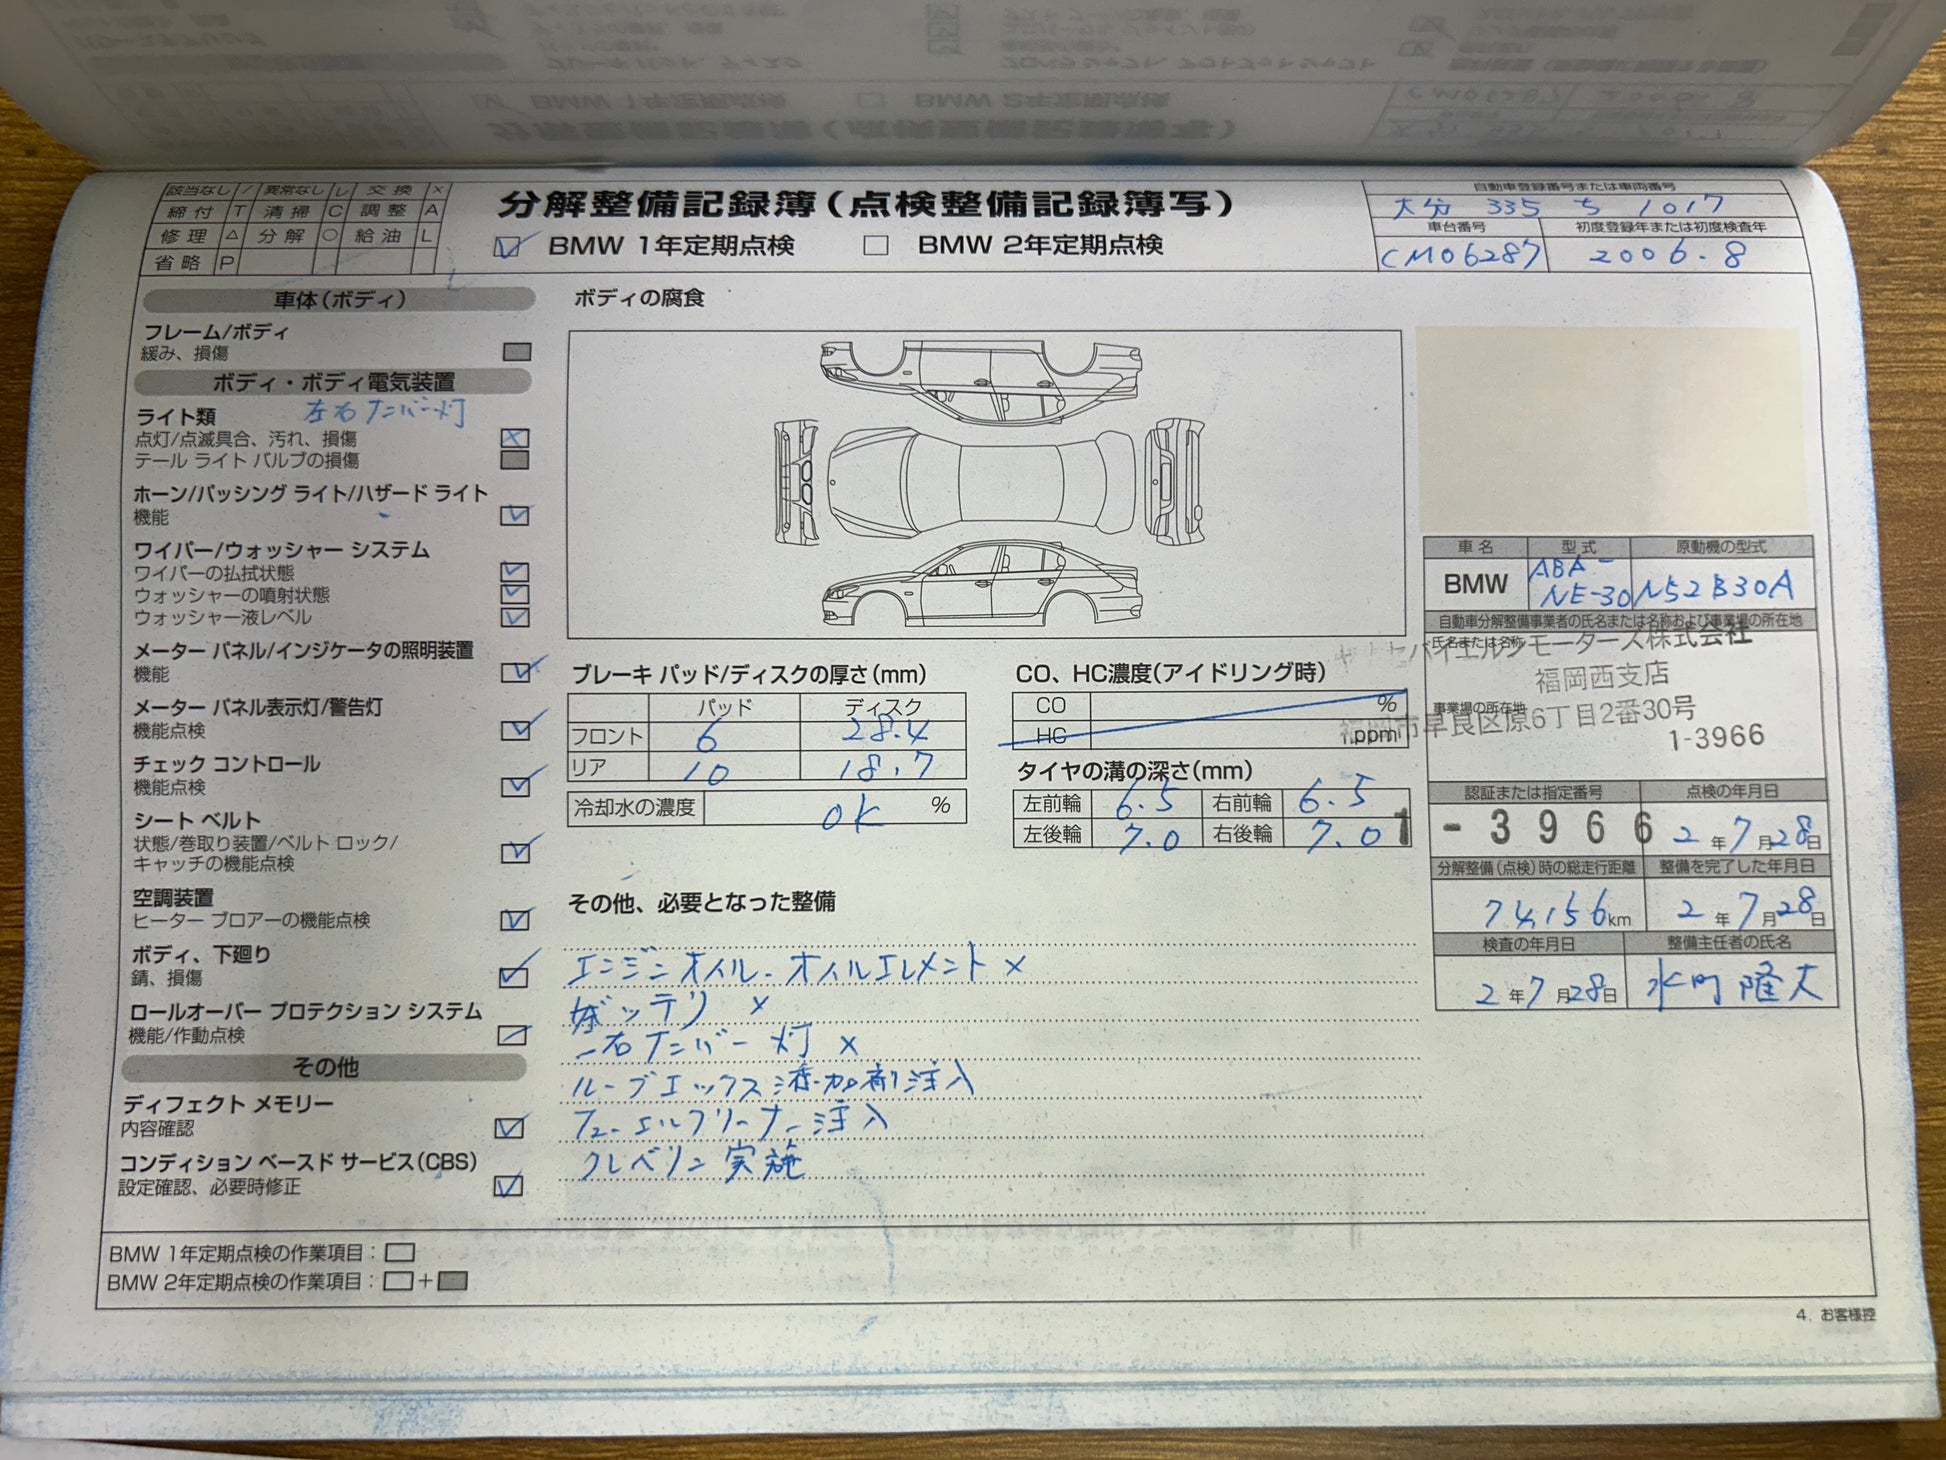 該当なし / 異常なし レ 交換 ×
締付 T 清掃 C 調整 A
修理 △ 分解 ○ 給油 L
省略 P
分解整備記録簿(点検整備記録簿写)
BMW 1年定期点検 BMW 2年定期点検
自動車登録番号または車両番号
大分 335 ち 1017
車台番号 初度登録年または初度検査年
CM06287 2006.8
車体(ボディ)
フレーム/ボディ
緩み、損傷
ボディ・ボディ電気装置
左右ナンバー灯
ライト類
点灯/点滅具合、汚れ、損傷
テール ライト バルブの損傷
ホーン/パッシング ライト/ハザード ライト
機能
ワイパー/ウォッシャー システム
ワイパーの払拭状態
ウォッシャーの噴射状態
ウォッシャー液レベル
メーター パネル/インジケータの照明装置
機能
メーター パネル表示灯/警告灯
機能点検
チェック コントロール
機能点検
シート ベルト
状態/巻取り装置/ベルト ロック/
キャッチの機能点検
空調装置
ヒーター ブロアーの機能点検
ボディ、下廻り
錆、損傷
ロールオーバー プロテクション システム
機能/作動点検
その他
ディフェクト メモリー
内容確認
コンディション ベースド サービス(CBS)
設定確認、必要時修正
ボディの腐食
ブレーキ パッド/ディスクの厚さ(mm)
パッド ディスク
フロント 6 28.4
リア 10 18.7
冷却水の濃度 OK %
CO、HC濃度(アイドリング時)
CO %
HC ppm
タイヤの溝の深さ(mm)
左前輪 6.5 右前輪 6.5
左後輪 7.0 右後輪 7.0
その他、必要となった整備
エンジンオイル・オイルエレメント ×
バッテリ ×
右ナンバー灯 ×
ループエックス添加剤注入
フューエルクリーナー注入
クレベリン実施
車名 型式 原動機の型式
BMW ABA-NE-30 N52B30A
自動車分解整備事業者の氏名または名称および事業場の所在地
氏名または名称
バイエルンモーターズ株式会社
福岡西支店
事業場の所在地
福岡市早良区原6丁目2番30号
1-3966
認証または指定番号 点検の年月日
1-3966 2年7月28日
分解整備(点検)時の総走行距離 整備を完了した年月日
74,156km 2年7月28日
検査の年月日 整備主任者の氏名
2年7月28日 水町 隆大
BMW 1年定期点検の作業項目:
BMW 2年定期点検の作業項目: +
4. お客様控